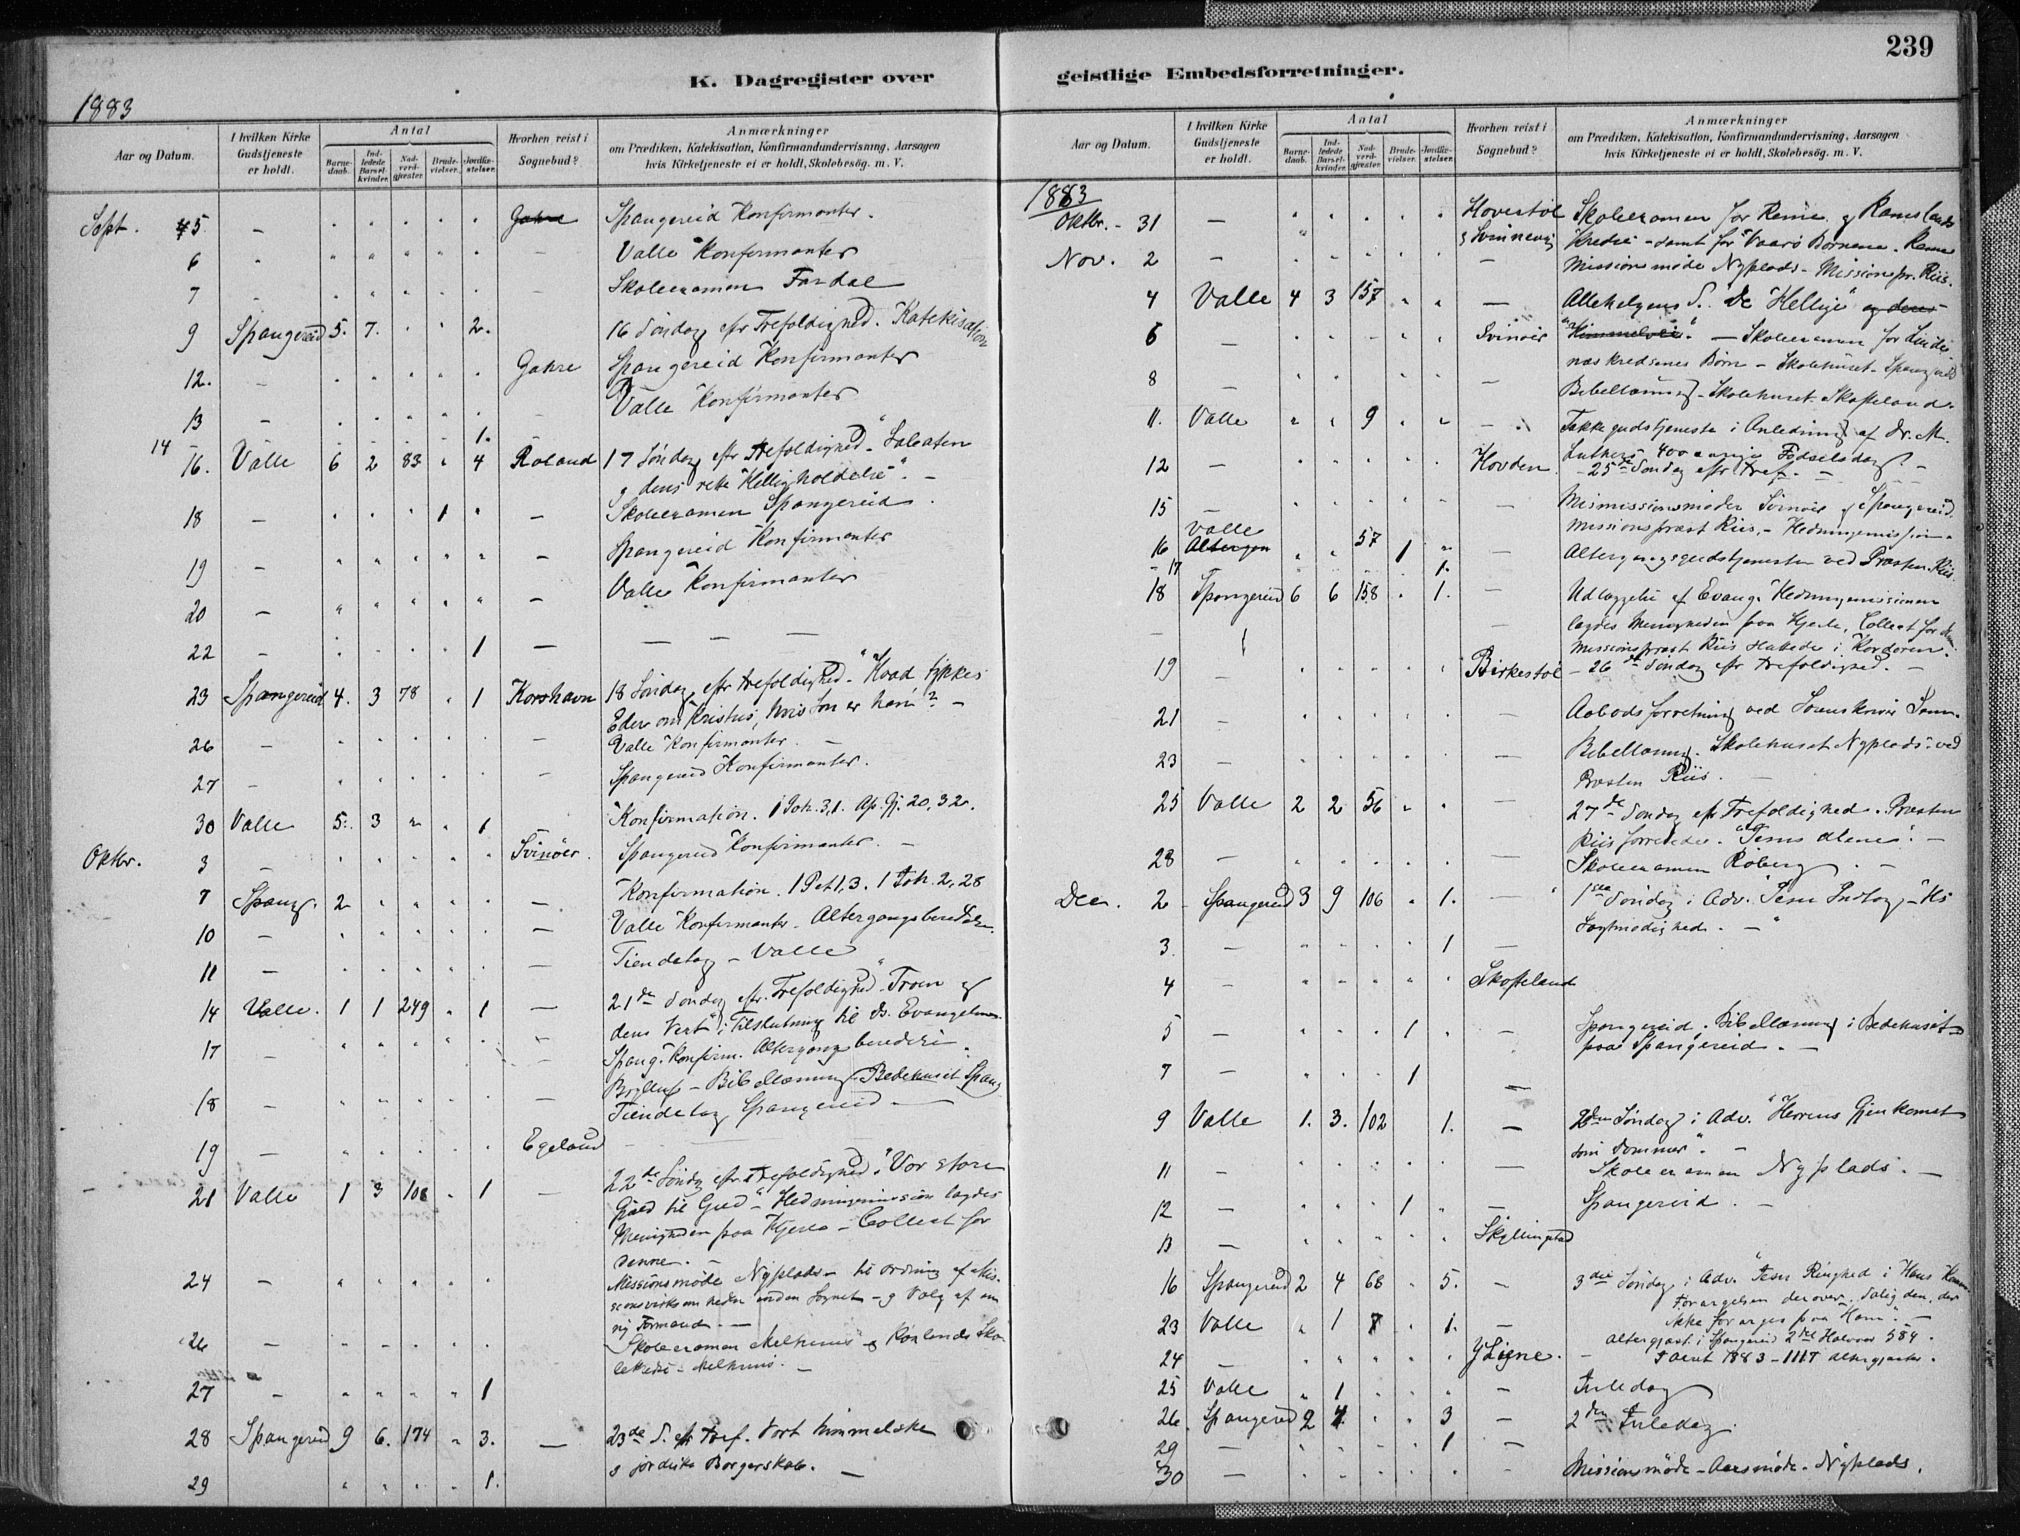 239
K. Dagregister over geistlige Embedsforretninger.
1883
Aar og Datum.
I hvilken Kirke Gudstjeneste er holdt.
Antal
Barnedaab.
Indledede Barselkvinder.
Nadverdgjæster.
Brudevielser.
Jordfæstelser.
Hvorhen reist i Sognebud?
Anmærkninger
om Prædiken, Katekisation, Konfirmandundervisning, Aarsagen
hvis Kirketjeneste ei er holdt, Skolebesög. m. V.
Sept. 5 - Spangereid Konfirmanter.
6 Valle Konfirmanter
7 Skoleexamen Fardal
9 Spangereid 5. 7. 2. 16 Söndag eftr Trefoldighed. Katekisation
12. - Gahre Spangereid Konfirmanter
13 - Valle Konfirmanter
14 1.
16. Valle 6 2 83 4 Roland 17 Söndag eftr Trefoldighed. "Sabaten
og dens rette Helligholdelse". -
18 - 1 - Skoleexamen Spangereid.
19 - Spangereid Konfirmanter
20 - Valle Konfirmanter
22 - 1 - - - -
23 Spangereid 4. 3 78 1 Korshavn 18 Söndag eftr Trefoldighed. "Hvad tykkes
Eder om Kristus, hvis Sön er han"? -
26 - Valle Konfirmanter. -
27 - Spangereid Konfirmanter.
30 Valle 5. 3 1 Konfirmation. 1 Joh. 3,1. Ap. Gj. 20,32.
Oktbr. 3 - Svinöer. Spangereid Konfirmanter. -
7 Spang. 2 - Konfirmation. 1 Pet 1,3. 1 Joh. 2,28
10 - Valle Konfirmanter. Altergangsberedelse.
11 - Tiendetag - Valle
14 Valle. 1 1 249 1 - 21de Söndag eftr. Trefoldighed. "Troen og
dens Vext" i Tilslutning til Ds. Evangelium.
17 - Spang. Konfirm. Altergangsberedelse.
Bryllup - Bibellæsning Bedehuset Spang
18 - Tiendetag Spangereid -
19 - Egeland
21 Valle 1 3 108 1 - 22de Söndag eftr. Trefoldighed. "Vor store
Gjæld til Gud" - Hedningemission lagdes
Menigheden paa Hjerte - Collect for
denne. -
24 - Missionsmöde Nyplads - til Ordning af Missionsvirksomheden
inden Sognet - og Valg af en
ny Formand. -
26 - Skoleexamen
27 - 1
28 Spangereid 9 6. 174 3. - 23de S. eft Tref. Vort himmelske
og jordiske Borgerskab. -
29 1.
Aar og Datum.
I hvilken Kirke Gudstjeneste er holdt.
Antal
Barnedaab.
Indledede Barselkvinder.
Nadverdgjæster.
Brudevielser.
Jordfæstelser.
Hvorhen reist i Sognebud?
Anmærkninger
om Prædiken, Katekisation, Konfirmandundervisning, Aarsagen
hvis Kirketjeneste ei er holdt, Skolebesög. m. V.
1883
Oktbr. - 31 - Hovestöl Skoleexamen for Rame og Ramslands
& Svinnevig Kredse - samt for Vaarö Börnene.
Nov. 2 - - Missionsmöde Nyplads - Missionspr. Riis.
4 Valle 4 3 157 - Allehelgens S. De "Hellige" og deres
6 - Svinöer "Himmelen". - Skoleexamen for
Börn - Skolehuset Spangereid
8 - - Bibellæsning - Skolehuset Skofteland.
11. Valle 9 - Takkegudstjeneste i Anledning af Dr. M.
Luthers 400 aarige Födselsdag. -
12 - Hovden - 25de Söndag eftr Tref. -
15 - - Missionsmöder Svinöer og Spangereid
Missionsprest Riis. - Hedningemission.
16 Valle 57 1 - Altergangsgudstjeneste ved Præsten Riis.
17 1.
18 Spangereid 6 6 158 1. - Udlæggelse af Evang. Hedningemissionen
lagdes Menigheden paa Hjerte. Collect for
Missionsprest Riis i Kordoren.
19 - Birkestöl - 26de Söndag eftr Trefoldighed. -
21 - - Aabodsforretning ved Sorenskriver
23 - Bibellæsning. Skolehuset Nyplads: ved
Præsten Riis. -
25 Valle 2 2 56 - 27de Söndag eft Trefoldighed. Præsten
Riis "Jesus alene". -
28 - - Skoleexamen Röberg. -
Dec. 2 Spangereid 3 9 106 1. - 1ste Söndag i Adv. "Jesu Indtog, - Hs
Sagtmodighed. - "
3. - 1 -
4 - Skofteland
5 - 1 - Spangereid. Bibellæsning i Bedehuset
paa Spangereid. -
7 - 1 -
9 Valle 1. 3. 102 1. - 2den Söndag i Adv. "Herrens Gjenkomst
som Dommer". -
11 - - Skoleexamen Nyplads. -
12 - 1 - Spangereid. -
13 - Skyllingstad
16 Spangereid 2 4 68 5. - 3die Söndag i Adv. "Jesu Ringhed i Hans
Forargelsen derover. Salig den, der
ikke forarges paa Ham". -
23 Valle 1 7 1. - Altergjæst. i Spangereid 2det Halvaar 584.
24 - Ligne. - I Aaret 1883 - 1117 altergjæster.
25 Valle 1 - Juledag
26. Spangereid 2 3 - 2den Juledag
29 - 1 -
30 - - Missionsmöde - Aarsmöde - Nyplads.